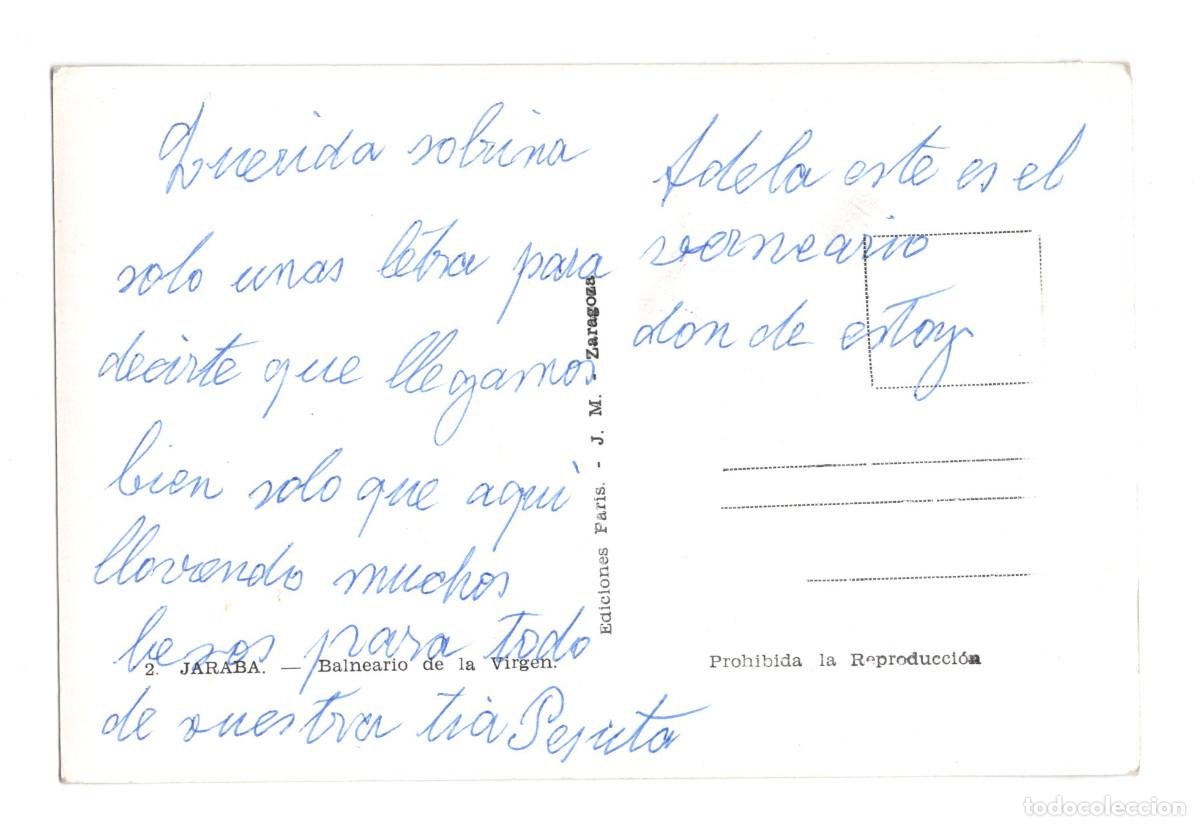 Querida sobrina
solo unas letra para
decirte que llegamos
bien solo que aqui
llovendo muchos
besos para todo
de vuestra tia Pepita
Adela este es el
verneario
don de estoy
Ediciones París. - J. M. - Zaragoza
2. JARABA. — Balneario de la Virgen.
Prohibida la Reproducción
todocoleccion